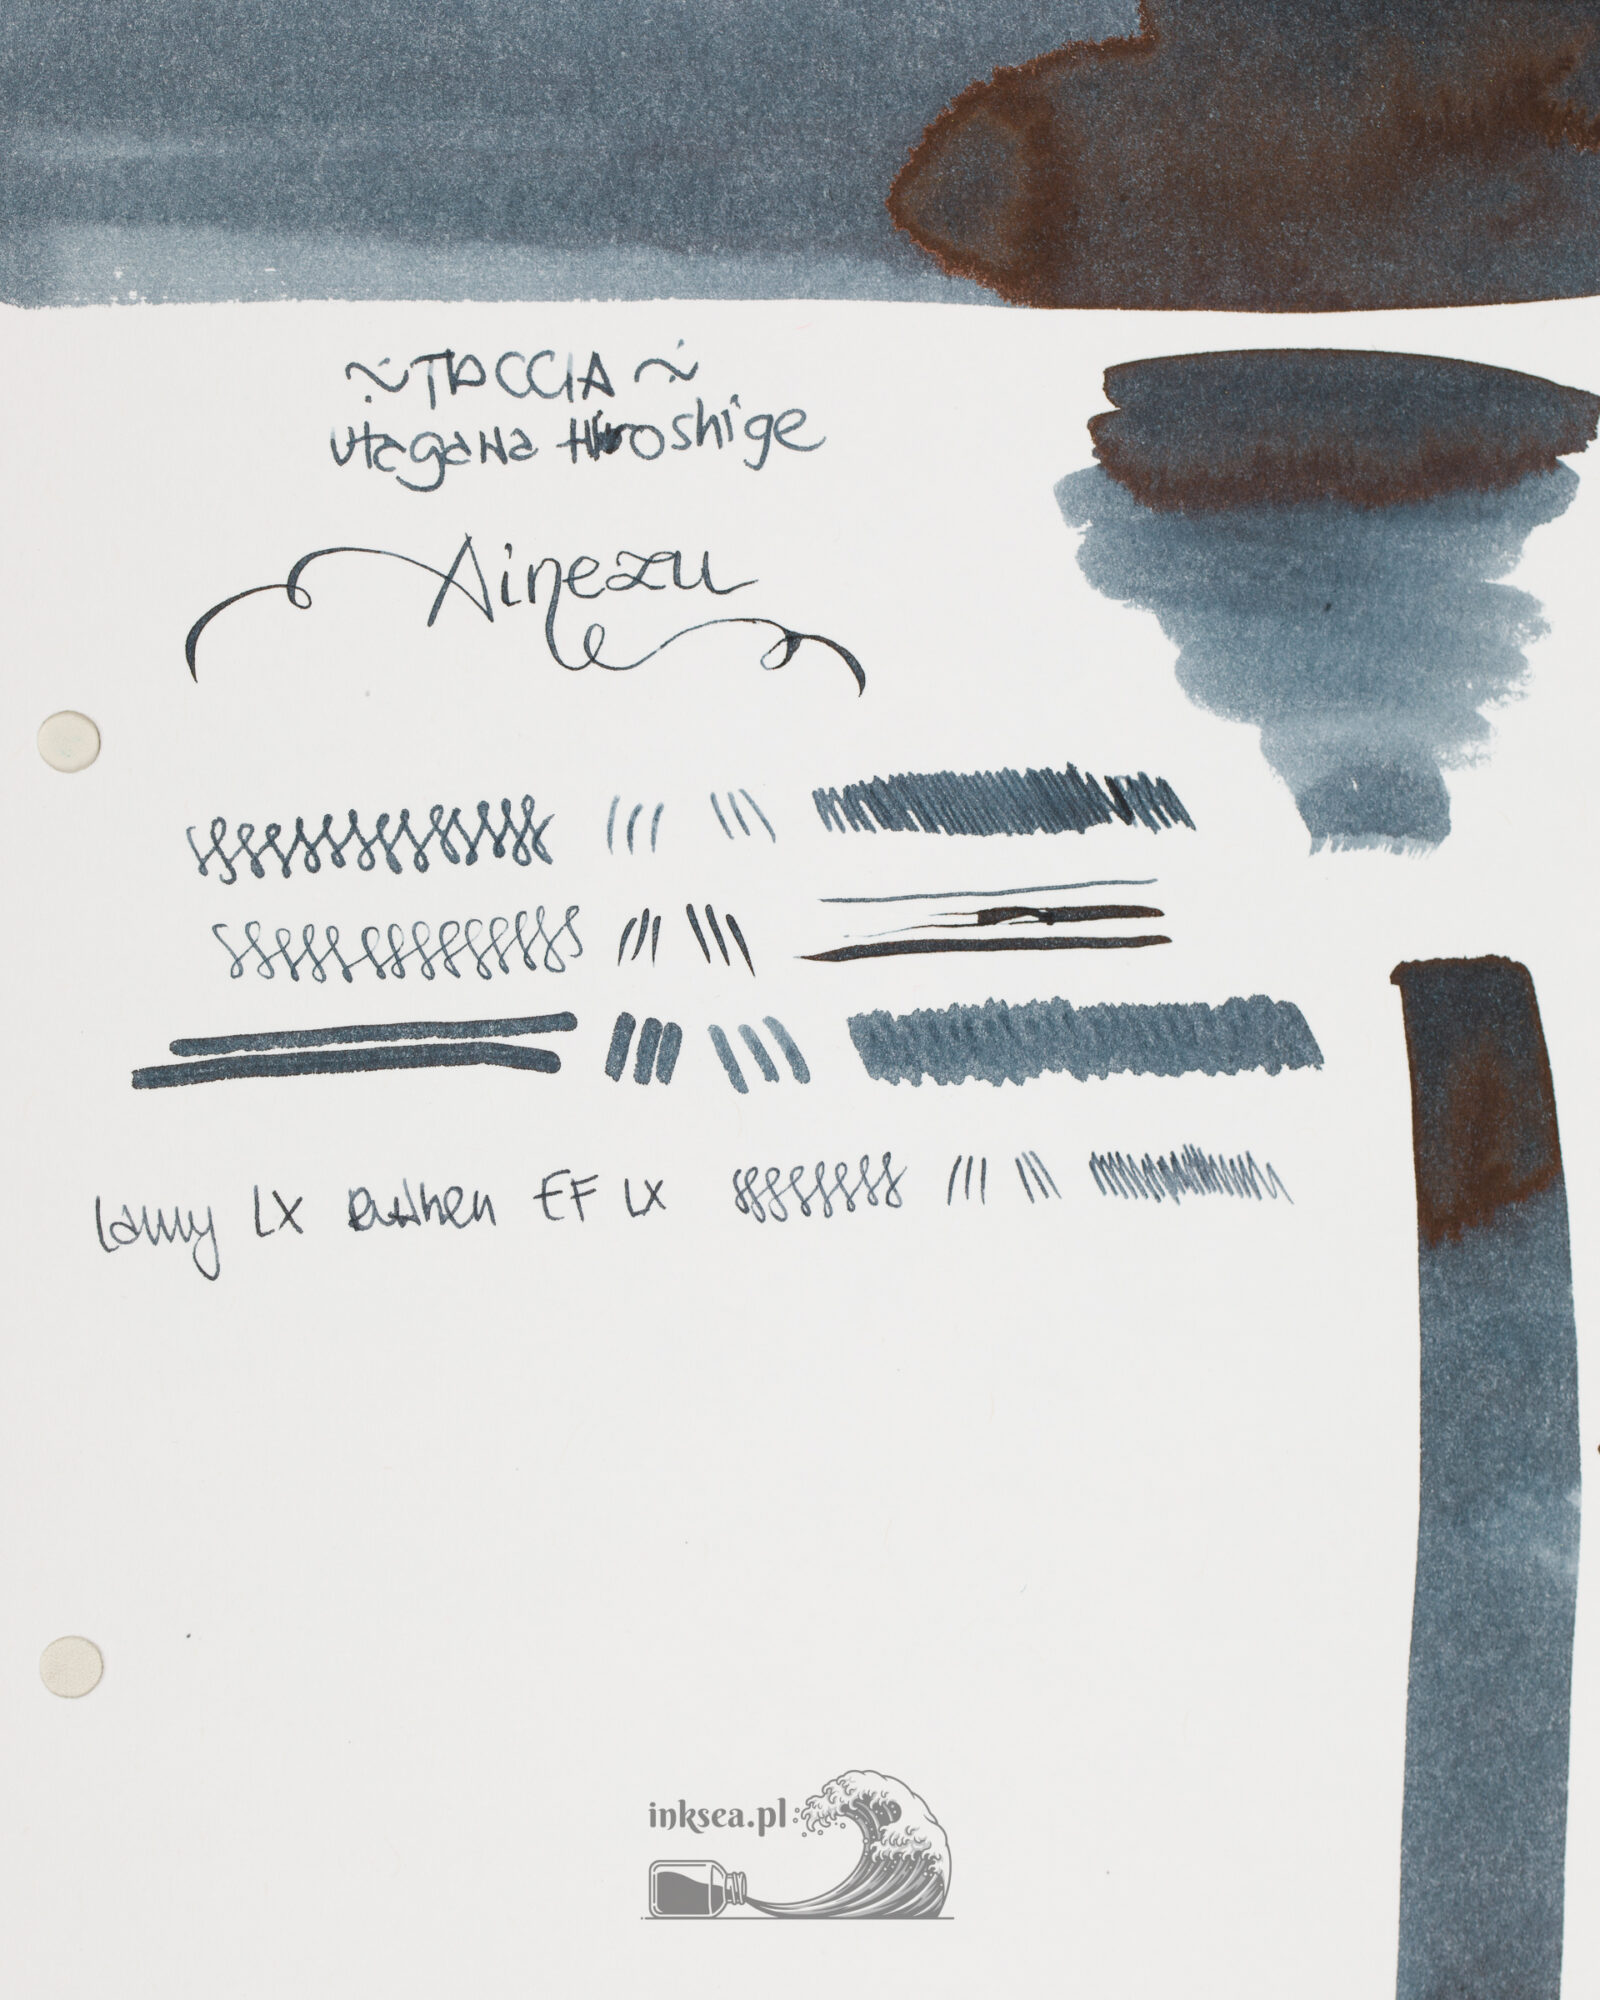 ~TACCIA~
Utagawa Hiroshige
Ainezu
Lamy LX EF LX
inksea.pl